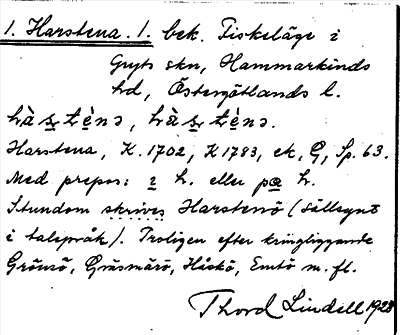 1. Harstena. 1. bek. Fiskeläge i
Gryts skn, Hammarkinds
hd, Östergötlands l.
hàs̠t̠è̠nə, hàs̠t̠è̠nə.
Harstena, K. 1702, K 1783, ek, G, Sp. 63.
Med prepos: i h. eller på h.
Stundom skrives Harstenö (sällsynt
i talspråk). Troligen efter kringliggande
Grönsö, Gräsmärö, Håskö, Emtö m. fl.
Thord Lindell 1928